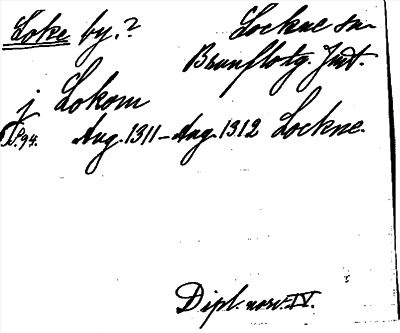 Loke by.? Lockne sn
Brunflotg. Jmt.
j Lokom
S. 94. Aug. 1311 – Aug. 1312 Lockne.
Dipl. norv. IV.